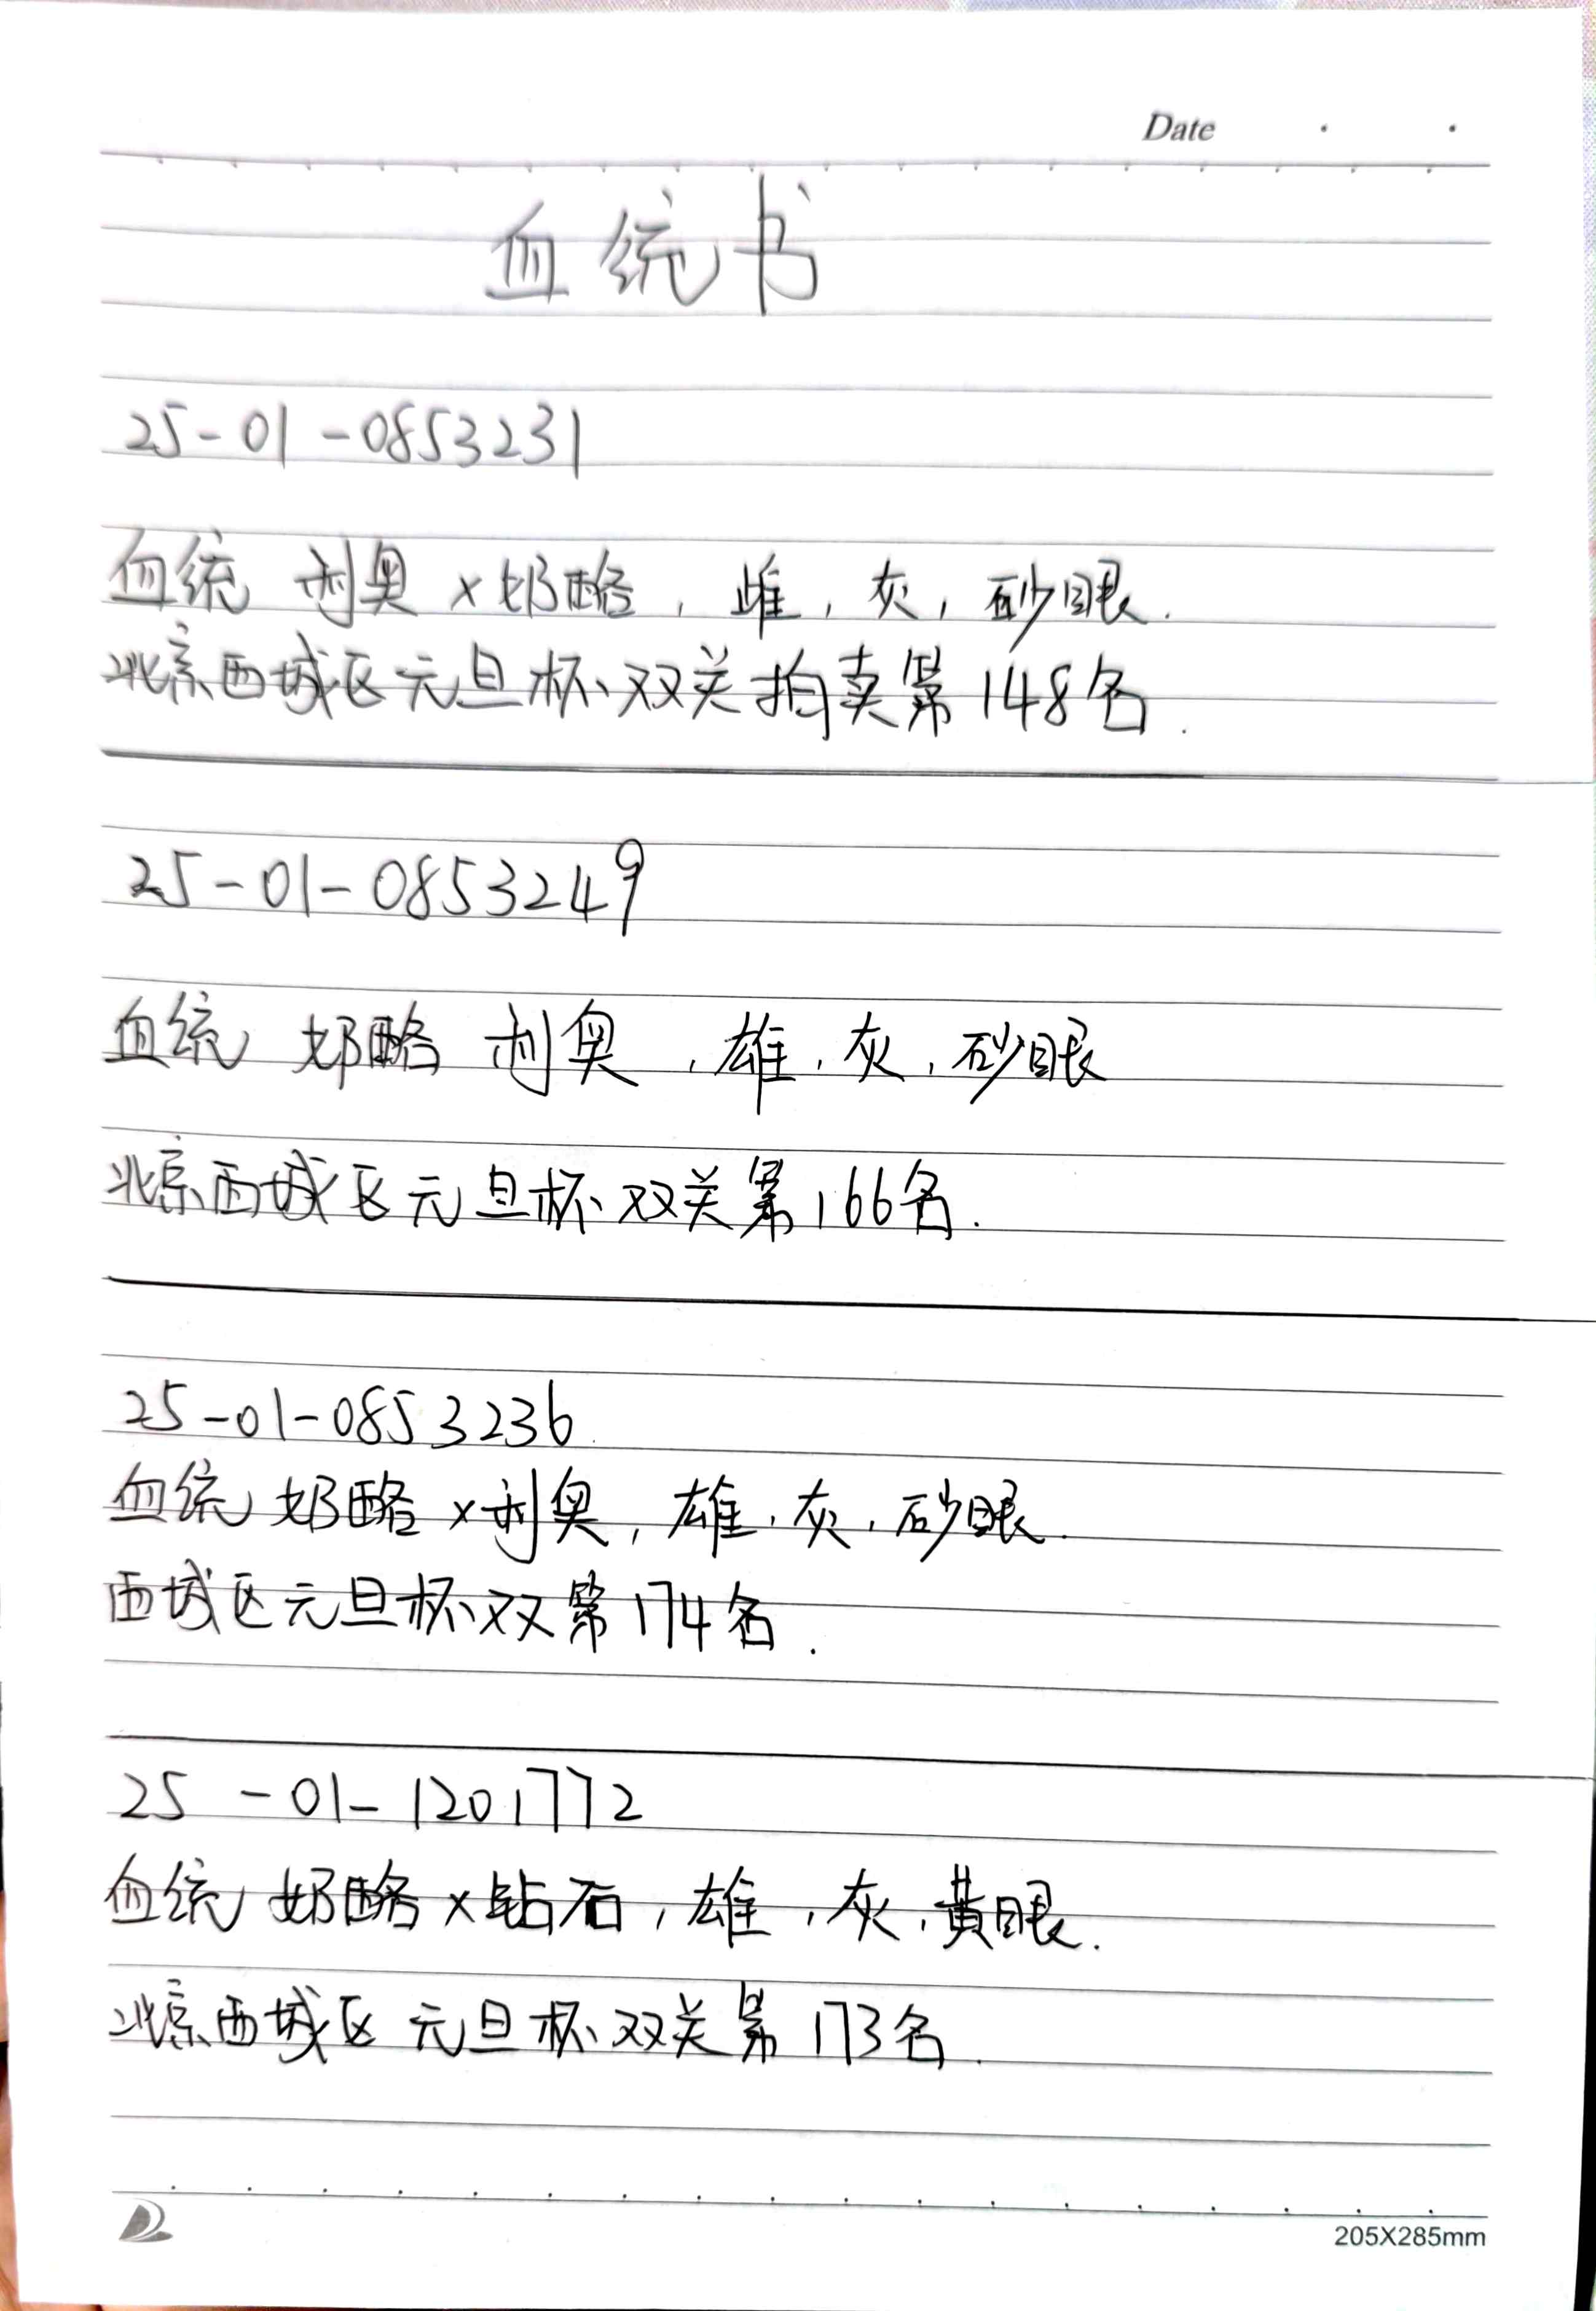 Date
血统书
25-01-0853231
血统 利奥×奶酪，雌，灰，砂眼.
北京西城区元旦杯双关拍卖第148名.
25-01-0853249
血统 奶酪 利奥，雄，灰，砂眼
北京西城区元旦杯双关第166名.
25-01-0853236
血统 奶酪×利奥，雄，灰，砂眼.
西城区元旦杯双第174名.
25-01-1201772
血统 奶酪×钻石，雄，灰，黄眼.
北京西城区元旦杯双关第173名.
205X285mm